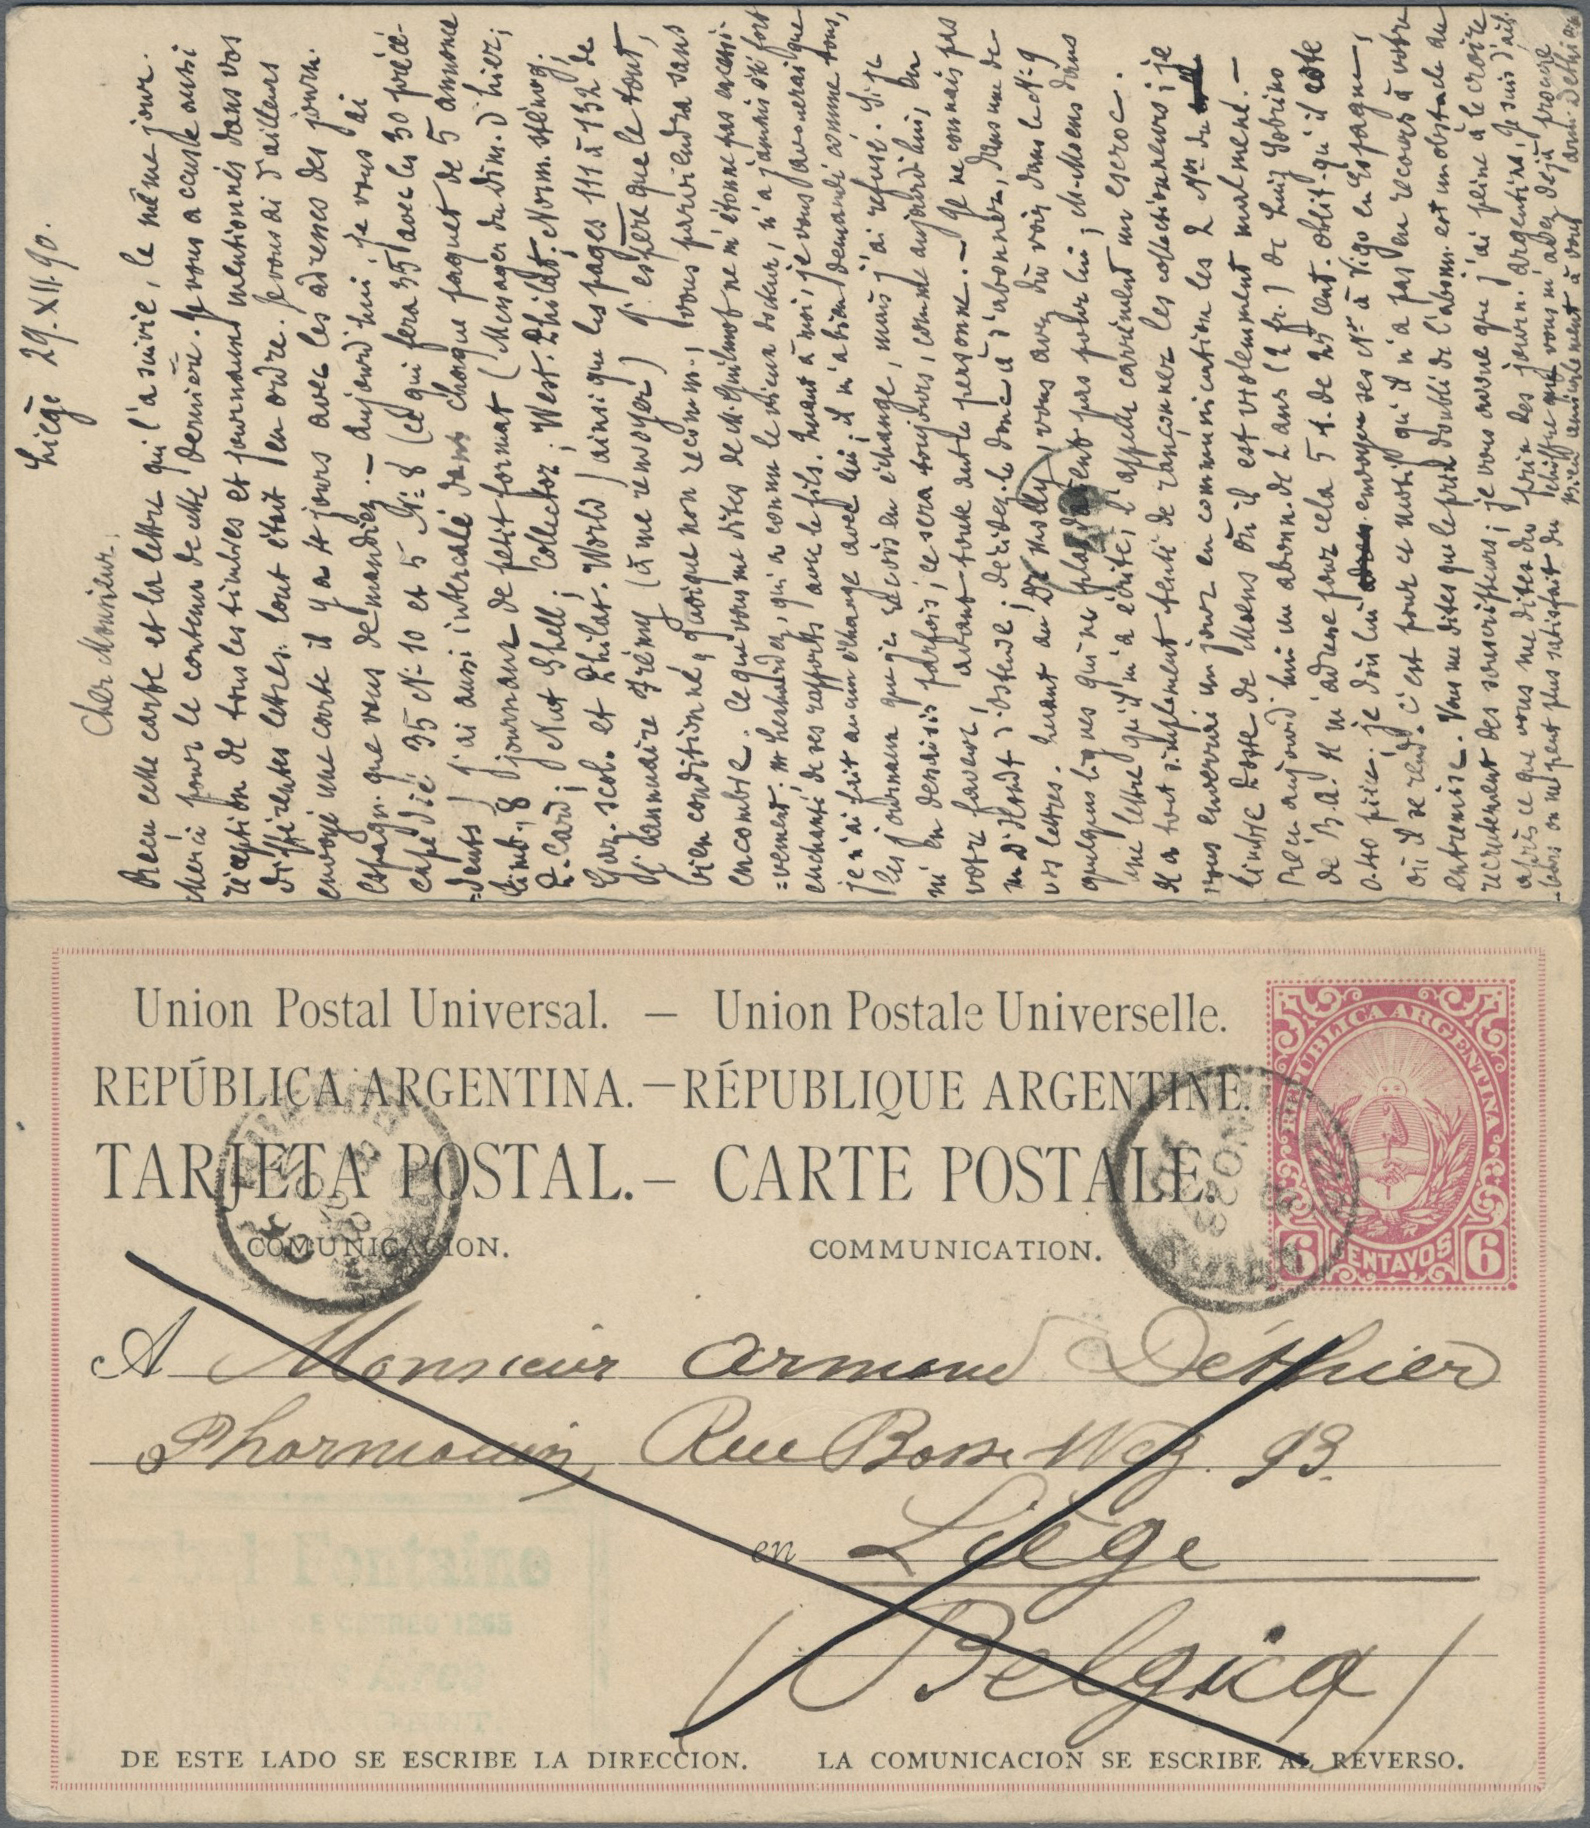 Liège 29.XII.90.
Cher Monsieur,
Reçu cette carte et la lettre qui l'a suivie, le même jour.
Merci pour le contenu de cette dernière. Je vous accuste aussi
réception de tous les timbres et journaux mentionnés dans vos
différentes lettres: tout était en ordre. Je vous ai d'ailleurs
envoyé une carte il y a 4 jours avec les adresses des journ.
espagn. que vous demandiez. — Aujourd'hui, je vous ai
expédié 35 No 10 et 5 No 8 (ce qui fera 35 avec les 30 précé-
=dents) j'ai aussi intercalé dans chaque paquet de 5 annonce
timb., 8 journaux de petit format (Messager du Dim. d'hier;
P. Card; Nut Shell; Collector; West. Philat; Norm. sténog;
Gaz. scol. et Philat. World) ainsi que les pages 111 à 132 de
l'annuaire Frémy (à me renvoyer) J'espère que le tout,
bien conditionné quoique non recomm., vous parviendra sans
encombre. Ce que vous me dites de M. Quilmof ne m'étonne pas excessi-
=vement. qui a connu le vieux docteur, n'a jamais été fort
enchanté de ses rapports avec le fils. Quant à moi, je vous avouerai que
je n'ai fait aucun échange avec lui; il m'a bien demandé comme tous,
les journaux que je reçois en échange, mais j'ai refusé. Si je
ni en désirais parfois, ce sera toujours, comme aujourd'hui, en
votre faveur, avant toute autre personne. — Je ne connais pas
M. d'Hondt d'Ostende; décidez-le donc à s'abonner, dans une de
vos lettres. Quant au Dr vous avez dû voir dans le No 9
quelques lignes qui ne plaidaient pas pour lui; M. Moens dans
une lettre qu'il m'a écrite, l'appelle carrément un escroc.
Il a tout simplement tenté de rançonner les collectionneurs; je
vous enverrai un jour en communication les 2 Nos du
timbre Poste de Moens où il est violemment malmené. —
Reçu aujourd'hui un abonn. de 2 ans (2 fr.) de Luiz Sobrino
de B.A. Il m'adresse pour cela 5 t. de 25 cent. oblit. qu'il cote
0.40 pièce. Je dois lui envoyer ses Nos à Vigo en Espagne,
où il se rend. C'est pour ce motif qu'il n'a pas eu recours à votre
entremise. Vous me dites que le prix doublé de l'abonn. est un obstacle au
recrutement des souscripteurs; je vous avoue que j'ai peine à le croire
après ce que vous me dites du prix des journ. argentins. Je suis d'ail-
-leurs on ne peut plus satisfait du chiffre que vous m'avez déjà procuré
Bien amicalement à vous
Arm. Dethier
Union Postal Universal. — Union Postale Universelle.
REPÚBLICA ARGENTINA. — RÉPUBLIQUE ARGENTINE.
TARJETA POSTAL. — CARTE POSTALE.
COMUNICACION. COMMUNICATION.
REPÚBLICA ARGENTINA
6 CENTAVOS 6
A Monsieur Armand Dethier
Pharmacien, Rue Basse Wez. 93.
en Liège
(Belgica)
Fontaine
DE CORREO 1265
DE ESTE LADO SE ESCRIBE LA DIRECCION. LA COMUNICACION SE ESCRIBE AL REVERSO.